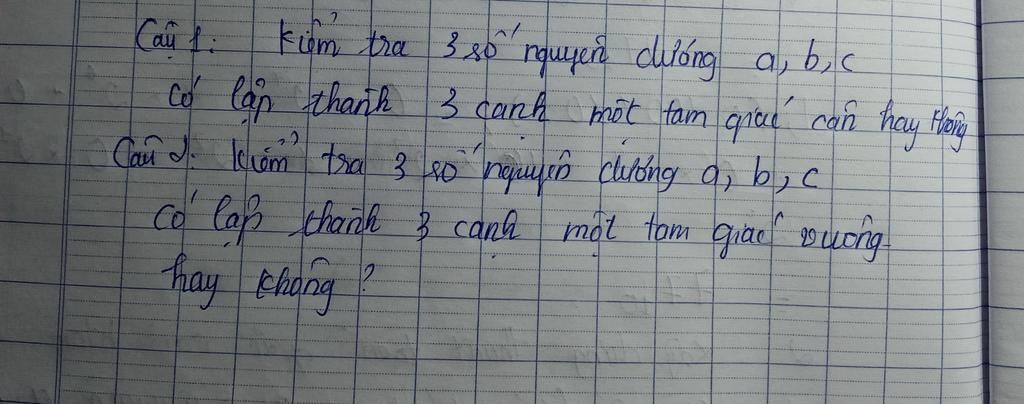 Câu 1: Kiểm tra 3 số nguyên dương a, b, c
có lập thành 3 cạnh một tam giác cân hay không
Câu 2: Kiểm tra 3 số nguyên dương a, b, c
có lập thành 3 cạnh một tam giác vuông
hay không?